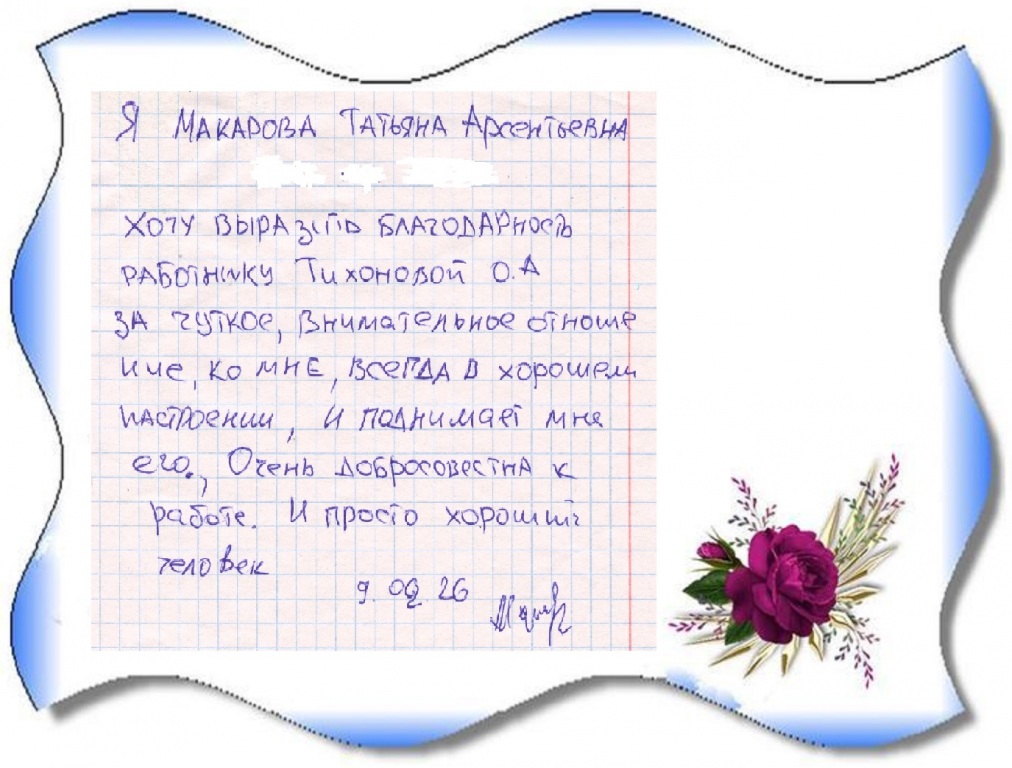 Я Макарова Татьяна Арсентьевна
хочу выразить благодарность
работнику Тихоновой О.А
за чуткое, внимательное отноше
ние, ко мне, всегда в хорошем
настроении, и поднимает мне
его., Очень добросовестна к
работе. И просто хороший
человек
9. 02. 26